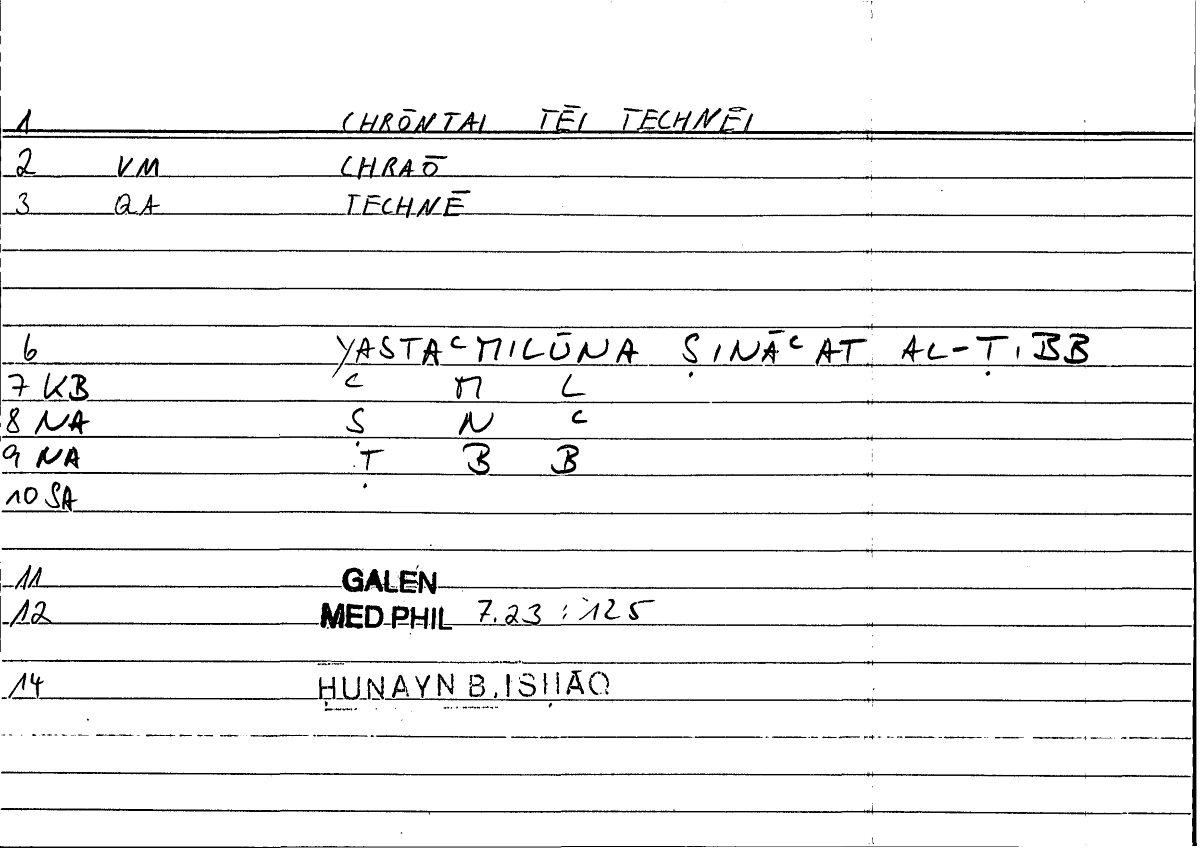 1 CHRŌNTAI TĒI TECHNĒI
2 VM CHRAŌ
3 QA TECHNĒ
6 YASTAᶜMILŪNA ṢINĀᶜAT AL-ṬIBB
7 KB ᶜ M L
8 NA Ṣ N ᶜ
9 NA Ṭ B B
10 SA
11 GALEN
12 MED PHIL 7.23 : 125
14 ḤUNAYN B. ISḤĀQ